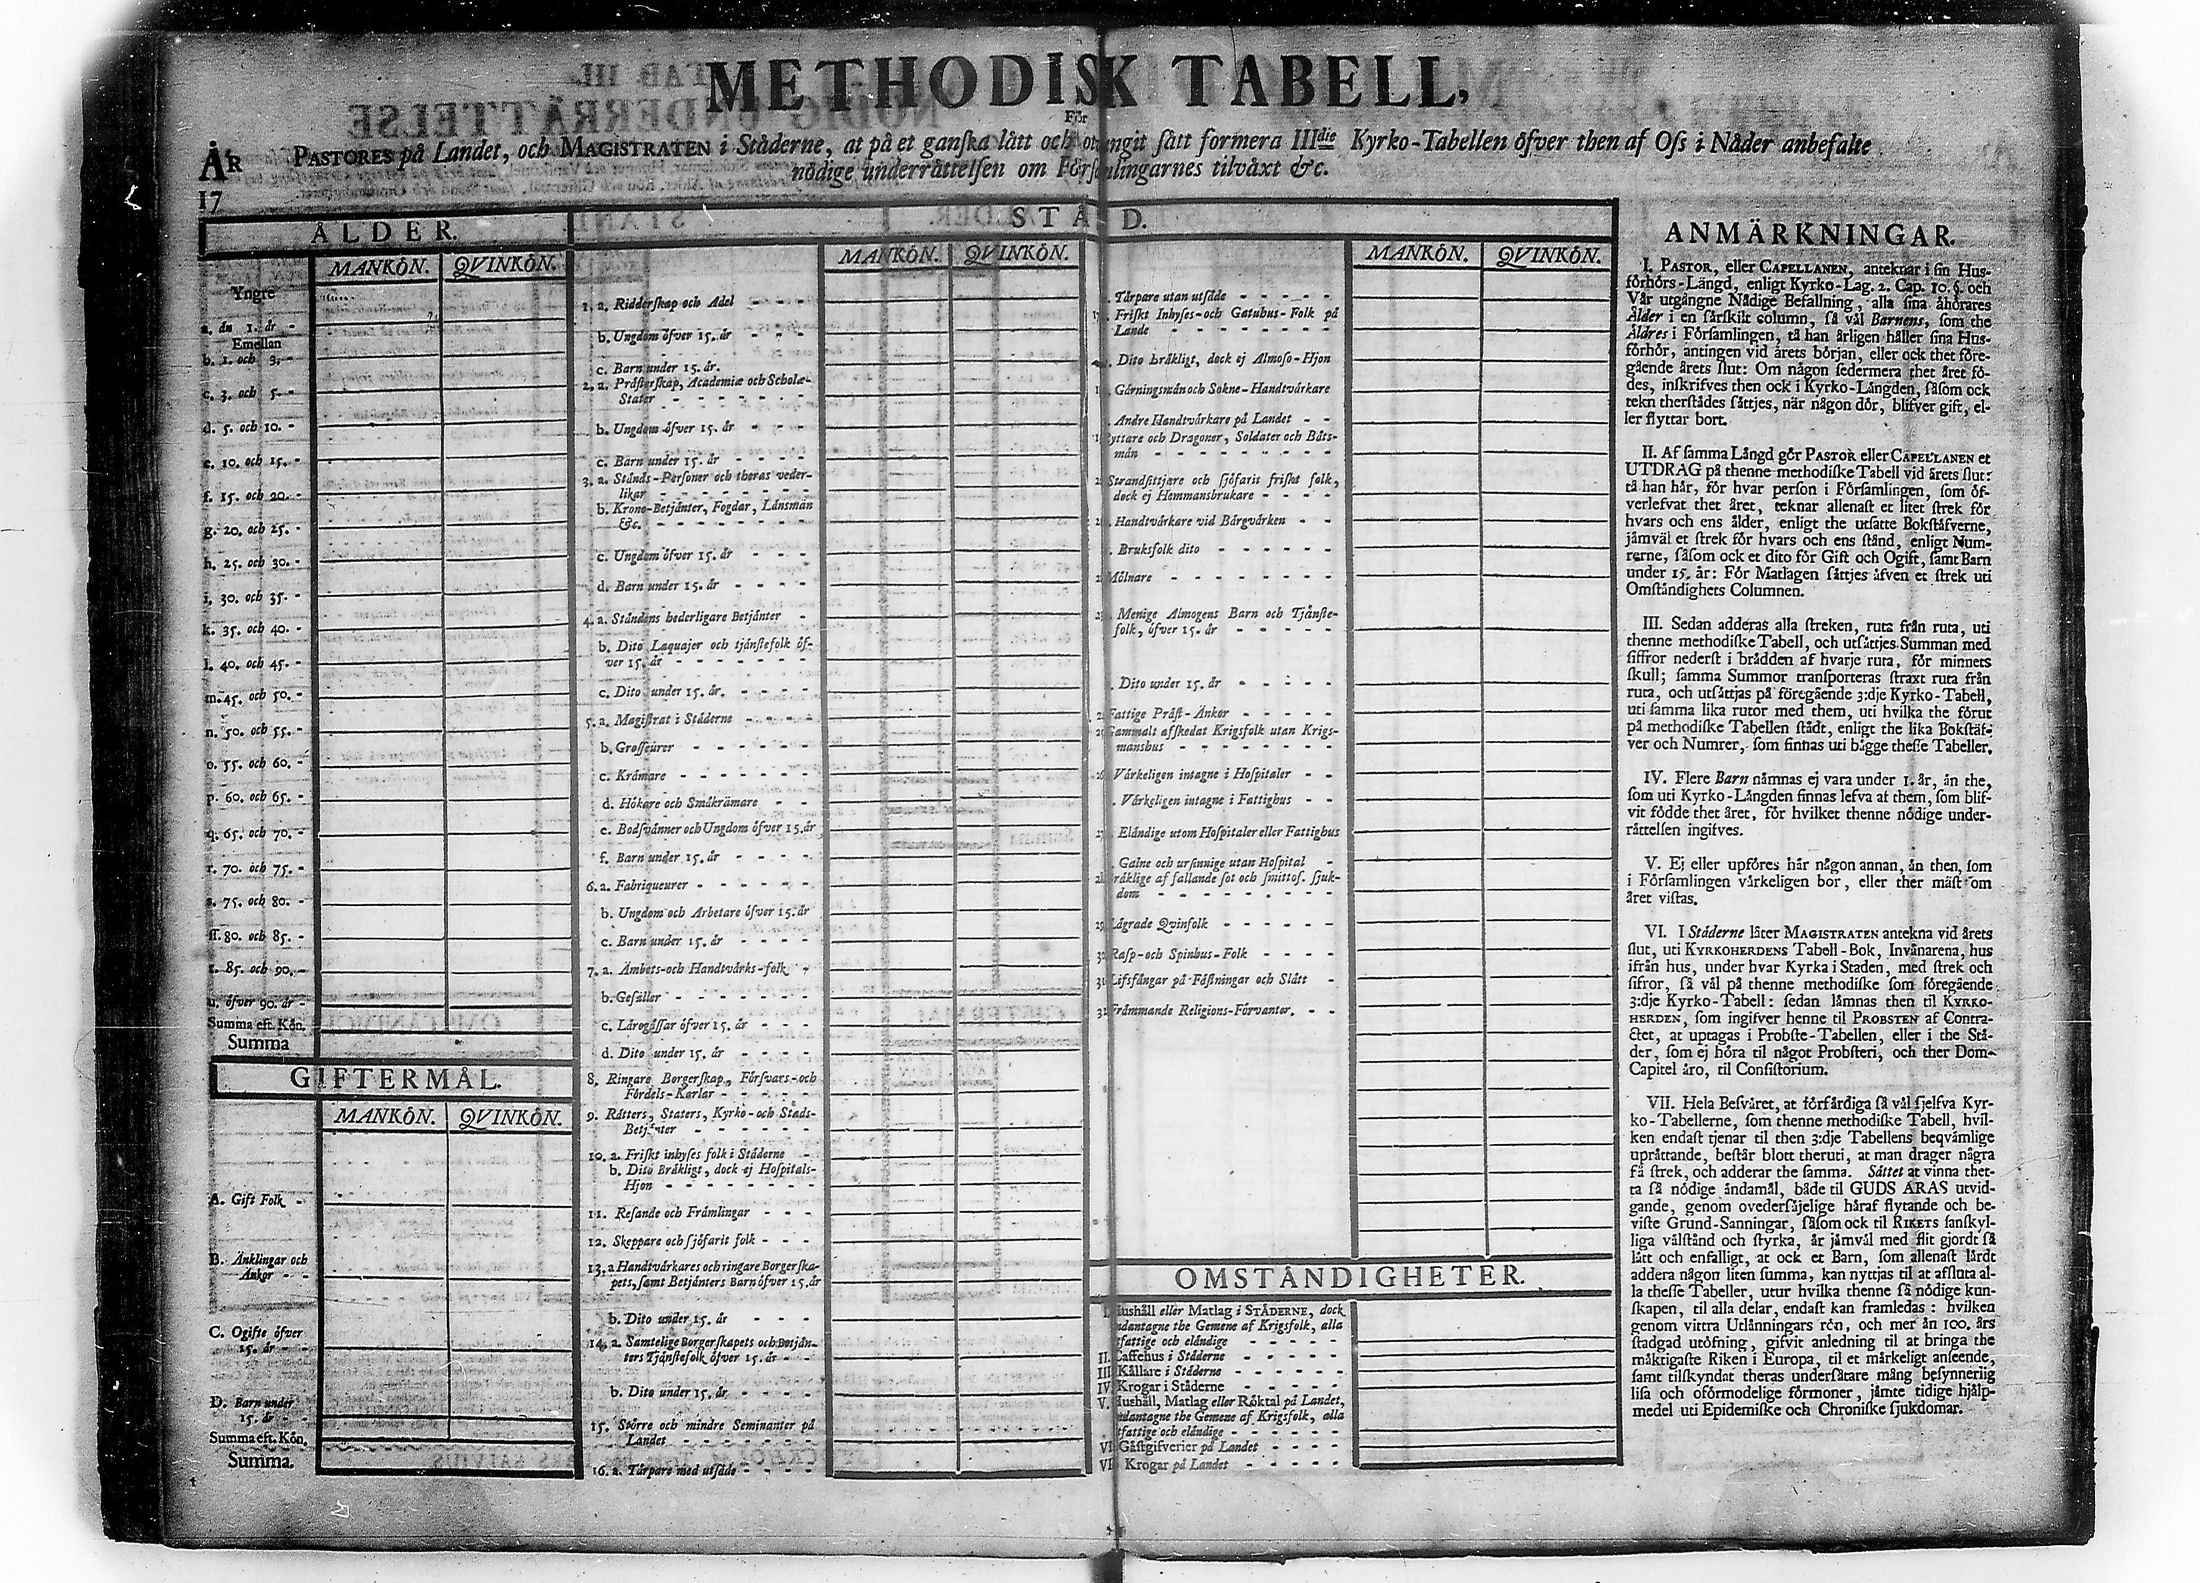 METHODISK TABELL,
För
PASTORES på Landet, och MAGISTRATEN i Ståderne, at på et ganſka lått och otvungit ſått formera IIIdie Kyrko-Tabellen öfver then af Oſs i Nåder anbefalte
nödige underråttelſen om Förſamlingarnes tilvåxt &c.
ÅR
17
ÅLDER.
MANKÖN. QVINKÖN.
Yngre
a. ån 1. år -
Emellan
b. 1. och 3. -
c. 3. och 5. -
d. 5. och 10. -
e. 10. och 15. -
f. 15. och 20. -
g. 20. och 25. -
h. 25. och 30. -
i. 30. och 35. -
k. 35. och 40. -
l. 40. och 45. -
m. 45. och 50. -
n. 50. och 55. -
o. 55. och 60. -
p. 60. och 65. -
q. 65. och 70. -
r. 70. och 75. -
s. 75. och 80. -
ſſ. 80. och 85. -
t. 85. och 90. -
u. öfver 90. år -
Summa eft. Kön.
Summa
GIFTERMÅL.
MANKÖN. QVINKÖN.
A. Gift Folk -
B. Änklingar och
Ånkor - -
C. Ogifte öfver
15. år - -
D. Barn under
15. år - -
Summa eft. Kön.
Summa.
STÅND.
MANKÖN. QVINKÖN.
1. a. Ridderſkap och Adel - - - -
b. Ungdom öfver 15. år - - -
c. Barn under 15. år.
2. a. Pråſterſkap, Academiæ och Scholæ-
Stater - - - - - - -
b. Ungdom öfver 15. år - - -
c. Barn under 15. år - - - -
3. a. Stånds-Perſoner och theras veder-
likar - - - - - - - -
b. Krono-Betjånter, Fogdar, Lånsmån
&c. - - - - - - - -
c. Ungdom öfver 15. år - - -
d. Barn under 15. år - - - -
4. a. Ståndens hederligare Betjånter -
b. Dito Laquajer och tjånſtefolk öf-
ver 15. år - - - - - - -
c. Dito under 15. år. - - - -
5. a. Magiſtrat i Ståderne - - - -
b. Groſſeurer - - - - - -
c. Kråmare - - - - - - -
d. Hökare och Småkrämare - -
e. Bodſvånner och Ungdom öfver 15. år
f. Barn under 15. år - - - -
6. a. Fabriqueurer - - - - - -
b. Ungdom och Arbetare öfver 15. år
c. Barn under 15. år - - - -
7. a. Åmbets-och Handtvårks-folk -
b. Geſåller - - - - - - -
c. Lårogåſſar öfver 15. år - - -
d. Dito under 15. år - - - -
8. Ringare Borgerſkap, Förſvars-och
Fördels-Karlar - - - - -
9. Råtters, Staters, Kyrko-och Stads-
Betjånter - - - - - -
10. a. Friſkt inhyſes folk i Ståderne -
b. Dito Bråkligt, dock ej Hoſpitals-
Hjon - - - - - - - -
11. Reſande och Fråmlingar - - -
12. Skeppare och ſjöfarit folk - - -
13. a Handtvårkares och ringare Borgerſka-
pets, ſamt Betjånters Barn öfver 15. år
b. Dito under 15. år - - -
14. a. Samtelige Borgerſkapets och Betjån-
ters Tjånſtefolk öfver 15. år - -
b. Dito under 15. år - - - -
15. Större och mindre Seminanter på
Landet - - - - - - -
16. a. Tårpare med utſåde - - - -
MANKÖN. QVINKÖN.
Tårpare utan utſåde - - - - -
Friſkt Inhyſes-och Gatuhus-Folk på
Lande - - - - - - - -
Dito bråkligt, dock ej Almoſo-Hjon
Gårningsmån och Sokne-Handtvårkare
Andre Handtvårkare på Landet - -
Ryttare och Dragoner, Soldater och Båts-
mån - - - - - - - - -
Strandſittjare och ſjöfarit friſkt folk,
dock ej Hemmansbrukare - - - -
Handtvårkare vid Bårgvårken - -
Bruksfolk dito - - - - - -
Mölnare - - - - - - - -
Menige Almogens Barn och Tjånſte-
folk, öfver 15. år - - - - -
Dito under 15. år - - - - -
Fattige Pråſt-Ånkor - - - - -
Gammalt afſkedat Krigsfolk utan Krigs-
manshus - - - - - - - -
Vårkeligen intagne i Hoſpitaler - -
Vårkeligen intagne i Fattighus - -
27. Elåndige utom Hoſpitaler eller Fattighus
Galne och urſinnige utan Hoſpital -
Bråklige af fallande ſot och ſmittoſ. ſjuk-
dom - - - - - - - -
29. Lågrade Qvinfolk - - - - - -
30. Raſp-och Spinhus-Folk - - - -
31. Lifsfångar på Fåſtningar och Slått -
Fråmmande Religions-Förvanter. - -
OMSTÅNDIGHETER.
I. Hushåll eller Matlag i STÅDERNE, dock
undantagne the Gemene af Krigsfolk, alla
utfattige och elåndige - - - - -
II. Caffehus i Ståderne - - - - -
III. Kållare i Ståderne - - - - -
IV. Krogar i Ståderne - - - - -
V. Hushåll, Matlag eller Röktal på Landet,
undantagne the Gemene af Krigsfolk, alla
utfattige och elåndige - - - - -
VI. Gåſtgifverier på Landet - - - -
VII. Krogar på Landet - - - - -
ANMÄRKNINGAR.
I. PASTOR, eller CAPELLANEN, anteknar i ſin Hus-
förhörs-Längd, enligt Kyrko-Lag. 2. Cap. 10. §. och
Vår utgångne Nådige Befallning, alla ſina åhörares
Ålder i en ſårſkilt column, ſå vål Barnens, ſom the
Åldres i Förſamlingen, tå han årligen håller ſina Hus-
förhör, antingen vid årets början, eller ock thet före-
gående årets ſlut: Om någon ſedermera thet året fö-
des, inſkrifves then ock i Kyrko-Långden, ſåſom ock
tekn therſtådes ſåttjes, når någon dör, blifver gift, el-
ler flyttar bort.
II. Af ſamma Långd gör PASTOR eller CAPELLANEN et
UTDRAG på thenne methodiſke Tabell vid årets ſlut:
tå han hår, för hvar perſon i Förſamlingen, ſom öf-
verlefvat thet året, teknar allenaſt et litet ſtrek för
hvars och ens ålder, enligt the utſatte Bokſtåfverne,
jåmvål et ſtrek för hvars och ens ſtånd, enligt Num-
rerne, ſåſom ock et dito för Gift och Ogift, ſamt Barn
under 15. år: För Matlagen ſåttjes åfven et ſtrek uti
Omſtåndighets Columnen.
III. Sedan adderas alla ſtreken, ruta från ruta, uti
thenne methodiſke Tabell, och utſåttjes Summan med
ſiffror nederſt i brådden af hvarje ruta, för minnets
ſkull; ſamma Summor tranſporteras ſtraxt ruta från
ruta, och utſåttjas på föregående 3:dje Kyrko-Tabell,
uti ſamma lika rutor med them, uti hvilka the förut
på methodiſke Tabellen ſtådt, enligt the lika Bokſtåf-
ver och Numrer, ſom finnas uti bågge theſſe Tabeller.
IV. Flere Barn nåmnas ej vara under 1. år, ån the,
ſom uti Kyrko-Långden finnas lefva af them, ſom blif-
vit födde thet året, för hvilket thenne nödige under-
råttelſen ingifves.
V. Ej eller upföres hår någon annan, ån then, ſom
i Förſamlingen vårkeligen bor, eller ther måſt om
året viſtas.
VI. I Ståderne låter MAGISTRATEN antekna vid årets
ſlut, uti KYRKOHERDENS Tabell-Bok, Invånarena, hus
ifrån hus, under hvar Kyrka i Staden, med ſtrek och
ſifror, ſå vål på thenne methodiſke ſom föregående
3:dje Kyrko-Tabell: ſedan låmnas then til KYRKO-
HERDEN, ſom ingifver henne til PROBSTEN af Contra-
ctet, at uptagas i Probſte-Tabellen, eller i the Stå-
der, ſom ej höra til något Probſteri, och ther Dom-
Capitel åro, til Conſiſtorium.
VII. Hela Beſvåret, at förfårdiga ſå vål ſjelfva Kyr-
ko-Tabellerne, ſom thenne methodiſke Tabell, hvil-
ken endaſt tjenar til then 3:dje Tabellens beqvåmlige
upråttande, beſtår blott theruti, at man drager några
få ſtrek, och adderar the ſamma. Såttet at vinna thet-
ta ſå nödige åndamål, både til GUDS ÅRAS utvid-
gande, genom overſåjelige håraf flytande och be-
viſte Grund-Sanningar, ſåſom ock til RIKETS ſanſkyl-
liga vålſtånd och ſtyrka, år jåmvål med flit gjordt ſå
lått och enfalligt, at ock et Barn, ſom allenaſt lårdt
addera någon liten ſumma, kan nyttjas til at afſluta al-
la theſſe Tabeller, utur hvilka thenne ſå nödige kun-
ſkapen, til alla delar, endaſt kan framledas: hvilken
genom vittra Utlånningars rön, och mer ån 100. års
ſtadgad utöfning, gifvit anledning til at bringa the
måktigaſte Riken i Europa, til et mårkeligt anſeende,
ſamt tilſkyndat theras underſåtare mång beſynnerlig
liſa och oförmodelige förmoner, jåmte tidige hjålp-
medel uti Epidemiſke och Chroniſke ſjukdomar.